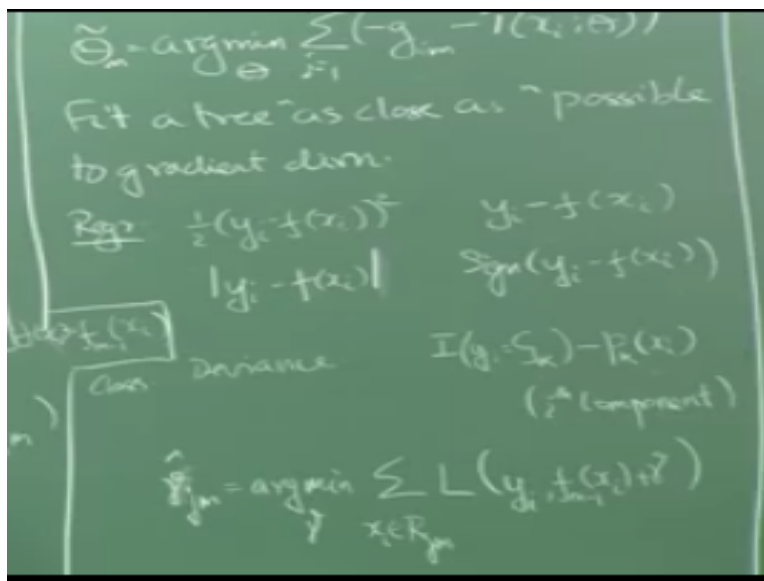 Θ̃_m = argmin_Θ Σ_{i=1} (-g_{im} - T(x_i; Θ))
Fit a tree "as close as" possible
to gradient dirn.
Regr ½(y_i - f(x_i))² y_i - f(x_i)
|y_i - f(x_i)| Sign(y_i - f(x_i))
f_{m-1}(x_i)
Class Deviance I(y_i = G_k) - P_k(x_i)
m) component)
γ̂_{jm} = argmin_γ Σ_{x_i ∈ R_{jm}} L(y_i, f_{m-1}(x_i) + γ)